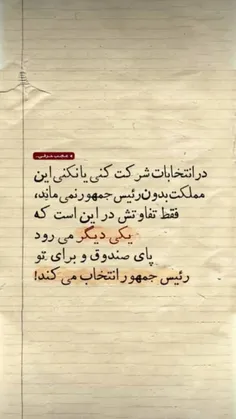 در انتخابات شرکت کنی یا نکنی این
مملکت بدون رئیس جمهور نمی ماند،
فقط تفاوتش در این است که
یکی دیگر می رود
پای صندوق و برای تو
رئیس جمهور انتخاب می کند!